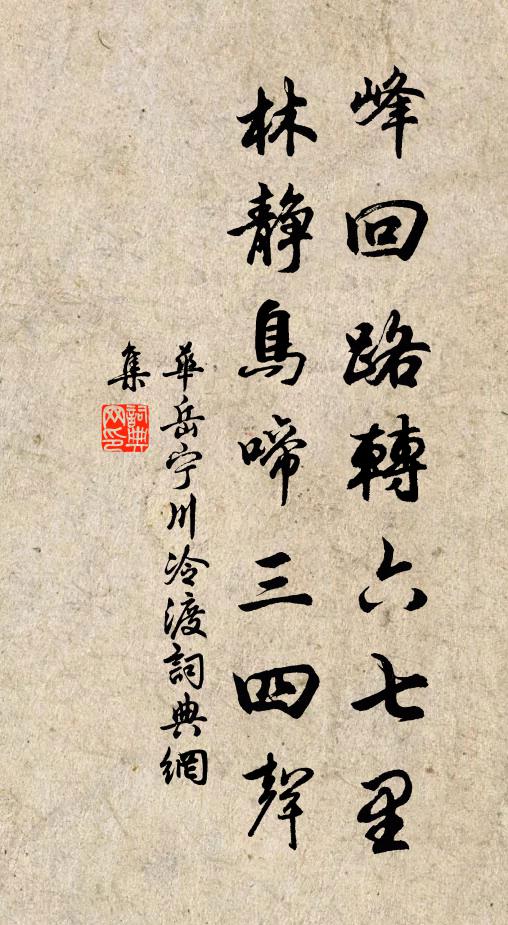 峰回路轉六七里
林静鳥啼三四聲
華岳宁川冷渡詞典網
集
詞典
网印